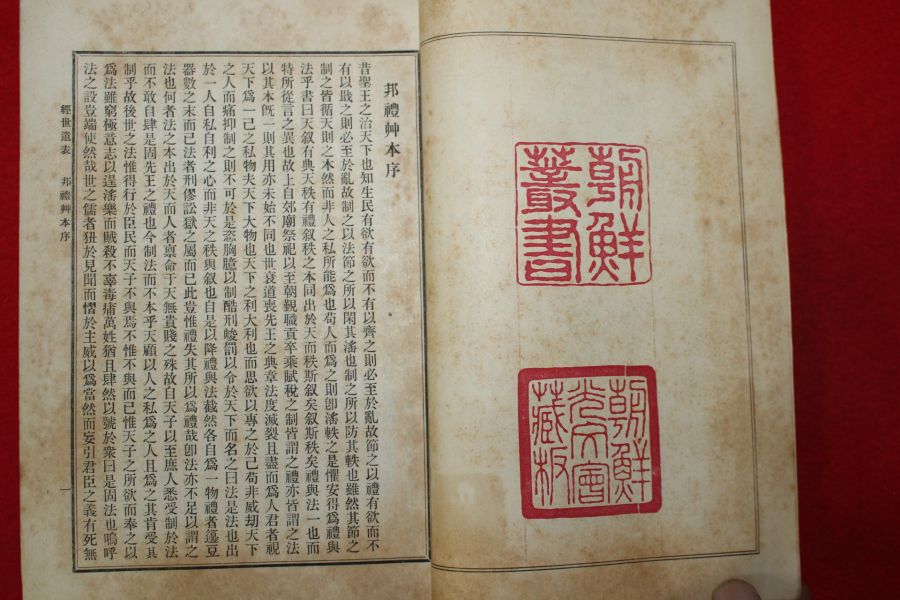 朝鮮
叢書
朝鮮
光文會
藏板
邦禮艸本序
昔聖王之治天下也知生民有欲有欲而不有以齊之則必至於亂故節之以禮有欲而不
有以戢之則必至於亂故制之以法節之所以閑其淫也制之所以防其軼也雖然其節之
制之皆循天則之本然而非人之私所能爲也苟人而爲之則卽淫軼之是懼安得爲禮與
法乎書曰天叙有典天秩有禮叙秩之本同出於天而秩斯叙矣叙斯秩矣禮與法一也而
特所從言之異也故上自郊廟祭祀以至朝覲職貢卒乘賦稅之制皆謂之禮亦皆謂之法
以其本旣一則其用亦未始不同也世衰道喪先王之典章法度滅裂且盡而爲人君者視
天下爲一己之私物夫天下大物也天下之利大利也而思欲以專之於己苟非威劫天下
之人而痛抑制之則不可於是恣胸臆以制酷刑峻罰以令於天下而名之曰法是法也出
於一人自私自利之心而非天之秩與叙也自是以降禮與法截然各自爲一物禮者籩豆
器數之末而已法者刑僇訟獄之屬而已此豈惟禮失其所以爲禮哉卽法亦不足以謂之
法也何者法之本出於天而人者稟命于天無貴賤之殊故自天子以至庶人悉受制於法
而不敢自肆是固先王之禮也今制法而不本乎天顧以人之私爲之人且爲之其肯受其
制乎故後世之法惟得行於臣民而天子不與焉不惟不與而已惟天子之所欲而奉之以
爲法雖窮極意志以逞淫樂而賊殺不辜毒痡萬姓猶且肆然以號於衆曰是固法也嗚呼
法之設豈端使然哉世之儒者狃於見聞而慴於主威以爲當然而妄引君臣之義有死無
經世遺表　邦禮艸本序
一